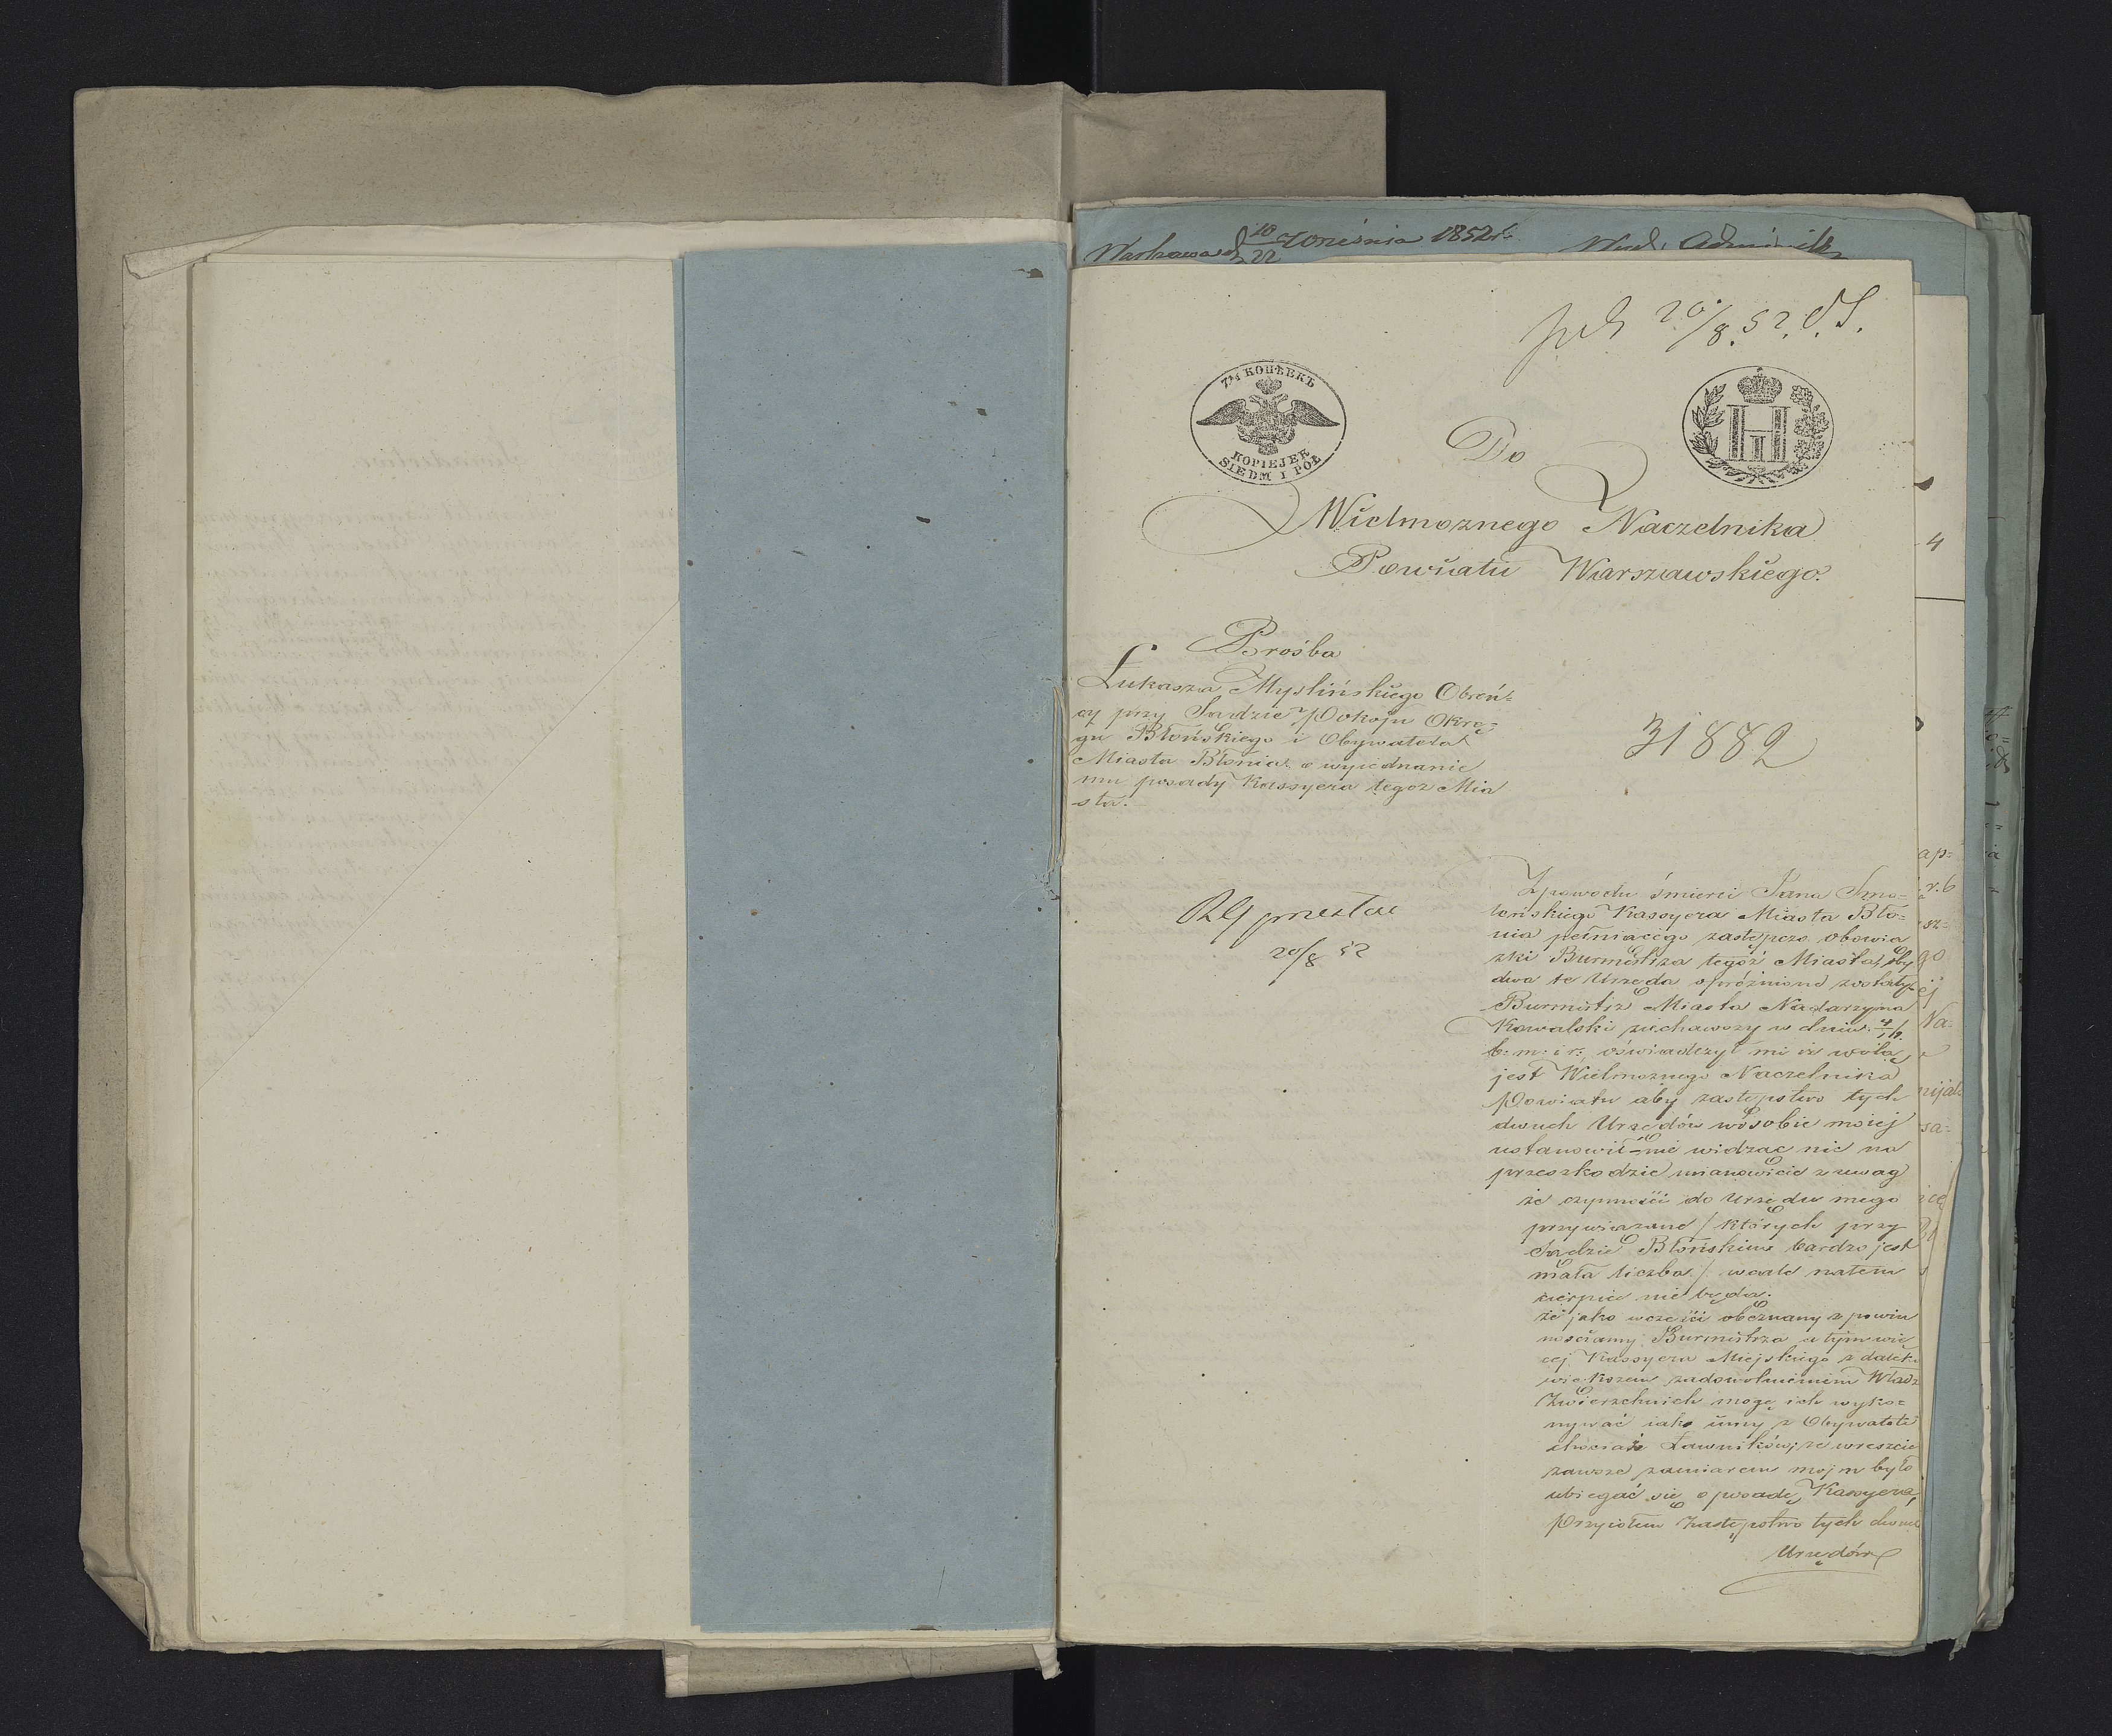 Warszawa d. 10/22 Września 1852 r.
20/8 52.
7½ КОПѢЕКЪ
KOPIEJEK
SIEDM I PÓŁ
Do
Wielmoznego Naczelnika
Powiatu Warszawskiego.
Prośba
Łukasza Myslińskiego Obroń=
cy przy Sądzie Pokoju Okrę=
gu Błońskiego i Obywatela
Miasta Błonia, o wyjednanie
mu posady Kassyera tegoż Mia
sta.
31882
20/8 52
Z powodu śmierci Jana Smo=
leńskiego Kassyera Miasta Bło=
nia pełniącego zastępczo obowią
zki Burmistrza tegoż Miasta, oby
dwa te Urzęda opróżnione zostały.
Burmistrz Miasta Nadarzyna
Kowalski zjechawszy w dniu
b: m: i r:, oświadczył mi iż wolą
jest Wielmoznego Naczelnika
Powiatu aby zastępstwo tych
dwuch Urzędów w osobie mojej
ustanowił – nie widząc nic na
przeszkodzie mianowicie z uwag
że czynności do Urzędu mego
przywiązane / których przy
Sądzie Błońskim bardzo jest
mała liczba / wcale na tem
cierpieć nie będą.
że jako w części obeznany z powin
nościamy Burmistrza a tym wię
cej Kassyera Miejskiego z dalek
większem zadowolnieniem Władz
Zwierzchnich mogę ich wyko=
nywać jak inny z Obywateli
chociaż Ławników; że wreszcie
zawsze zamiarem mojm było
ubiegać się o posadę Kassyera,
Przyjołem Zastępstwo tych dwuch
Urzędów